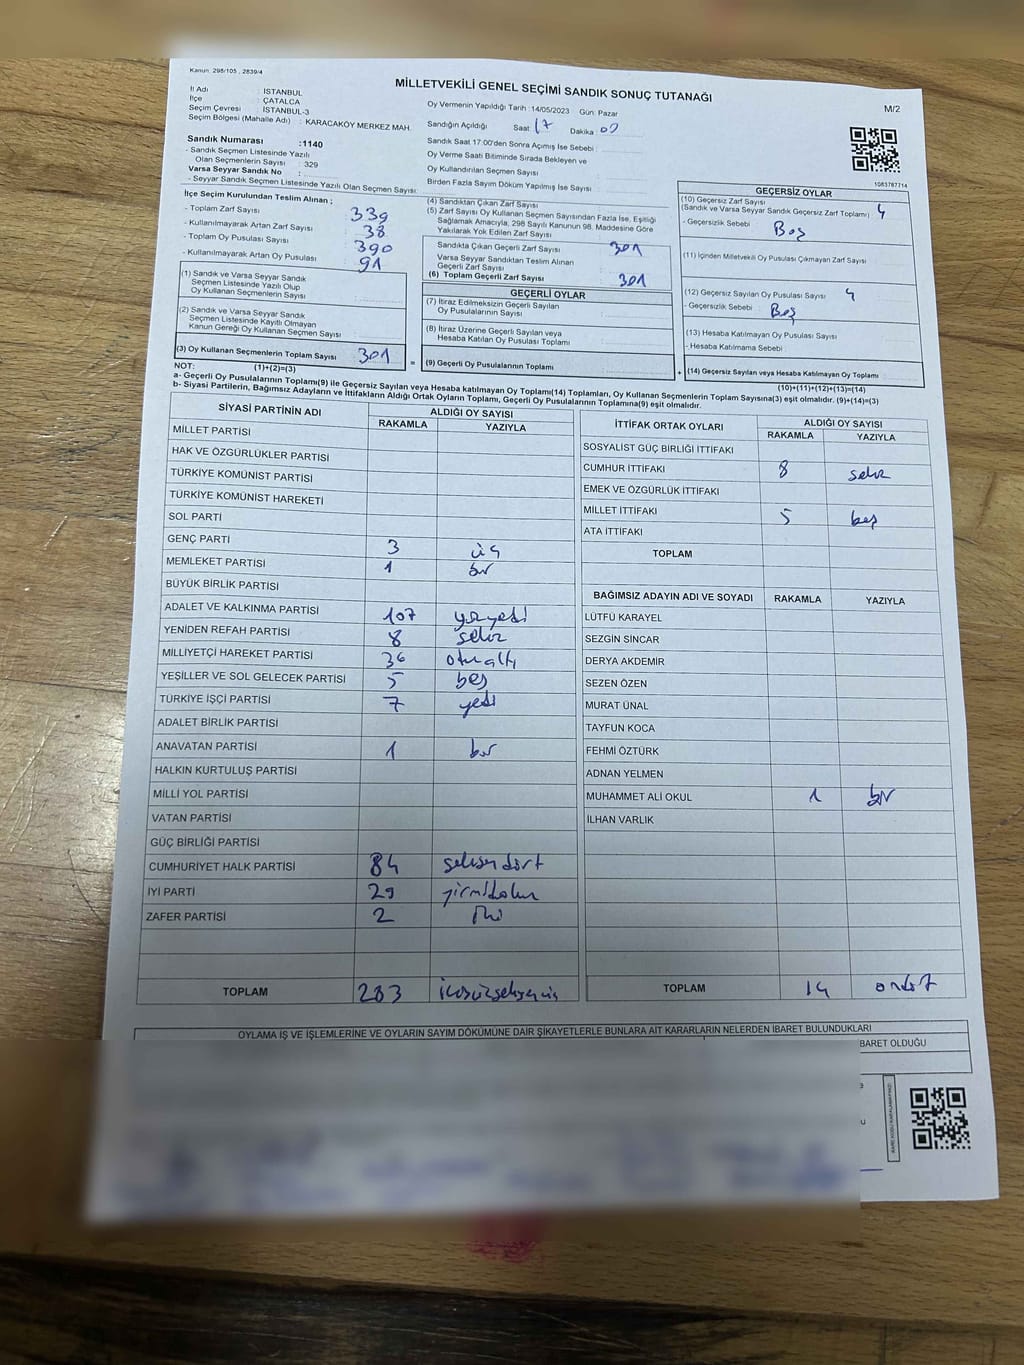 Kanun: 298/105 , 2839/4
MİLLETVEKİLİ GENEL SEÇİMİ SANDIK SONUÇ TUTANAĞI
M/2
İl Adı : İSTANBUL
İlçe : ÇATALCA
Seçim Çevresi : İSTANBUL-3
Seçim Bölgesi (Mahalle Adı) : KARACAKÖY MERKEZ MAH.
Oy Vermenin Yapıldığı Tarih : 14/05/2023 Gün: Pazar
Sandığın Açıldığı Saat 17 Dakika 00
Sandık Saat 17:00'den Sonra Açımış İse Sebebi :
Oy Verme Saati Bitiminde Sırada Bekleyen ve
Oy Kullandırılan Seçmen Sayısı :
Birden Fazla Sayım Döküm Yapılmış İse Sayısı :
Sandık Numarası :1140
- Sandık Seçmen Listesinde Yazılı
Olan Seçmenlerin Sayısı : 329
Varsa Seyyar Sandık No :
- Seyyar Sandık Seçmen Listesinde Yazılı Olan Seçmen Sayısı:
1083787714
İlçe Seçim Kurulundan Teslim Alınan ;
- Toplam Zarf Sayısı 339
- Kullanılmayarak Artan Zarf Sayısı 38
- Toplam Oy Pusulası Sayısı 390
- Kullanılmayarak Artan Oy Pusulası 91
(1) Sandık ve Varsa Seyyar Sandık
Seçmen Listesinde Yazılı Olup
Oy Kullanan Seçmenlerin Sayısı :
(2) Sandık ve Varsa Seyyar Sandık
Seçmen Listesinde Kayıtlı Olmayan
Kanun Gereği Oy Kullanan Seçmen Sayısı :
(3) Oy Kullanan Seçmenlerin Toplam Sayısı 301
(1)+(2)=(3)
(4) Sandıktan Çıkan Zarf Sayısı :
(5) Zarf Sayısı Oy Kullanan Seçmen Sayısından Fazla İse, Eşitliği
Sağlamak Amacıyla, 298 Sayılı Kanunun 98. Maddesine Göre
Yakılarak Yok Edilen Zarf Sayısı :
Sandıkta Çıkan Geçerli Zarf Sayısı : 301
Varsa Seyyar Sandıktan Teslim Alınan
Geçerli Zarf Sayısı :
(6) Toplam Geçerli Zarf Sayısı 301
GEÇERLİ OYLAR
(7) İtiraz Edilmeksizin Geçerli Sayılan
Oy Pusulalarının Sayısı :
(8) İtiraz Üzerine Geçerli Sayılan veya
Hesaba Katılan Oy Pusulası Toplamı :
= (9) Geçerli Oy Pusulalarının Toplamı : +
GEÇERSİZ OYLAR
(10) Geçersiz Zarf Sayısı
(Sandık ve Varsa Seyyar Sandık Geçersiz Zarf Toplamı) : 4
- Geçersizlik Sebebi : Boş
(11) İçinden Milletvekili Oy Pusulası Çıkmayan Zarf Sayısı
(12) Geçersiz Sayılan Oy Pusulası Sayısı : 4
- Geçersizlik Sebebi : Boş
(13) Hesaba Katılmayan Oy Pusulası Sayısı :
- Hesaba Katılmama Sebebi :
(14) Geçersiz Sayılan veya Hesaba Katılmayan Oy Toplamı :
(10)+(11)+(12)+(13)=(14)
NOT:
a- Geçerli Oy Pusulalarının Toplamı(9) ile Geçersiz Sayılan veya Hesaba katılmayan Oy Toplamı(14) Toplamları, Oy Kullanan Seçmenlerin Toplam Sayısına(3) eşit olmalıdır. (9)+(14)=(3)
b- Siyasi Partilerin, Bağımsız Adayların ve İttifakların Aldığı Ortak Oyların Toplamı, Geçerli Oy Pusulalarının Toplamına(9) eşit olmalıdır.
SİYASİ PARTİNİN ADI ALDIĞI OY SAYISI
RAKAMLA YAZIYLA
MİLLET PARTİSİ
HAK VE ÖZGÜRLÜKLER PARTİSİ
TÜRKİYE KOMÜNİST PARTİSİ
TÜRKİYE KOMÜNİST HAREKETİ
SOL PARTİ
GENÇ PARTİ 3 üç
MEMLEKET PARTİSİ 1 bir
BÜYÜK BİRLİK PARTİSİ
ADALET VE KALKINMA PARTİSİ 107 yüzyedi
YENİDEN REFAH PARTİSİ 8 sekiz
MİLLİYETÇİ HAREKET PARTİSİ 36 otuzaltı
YEŞİLLER VE SOL GELECEK PARTİSİ 5 beş
TÜRKİYE İŞÇİ PARTİSİ 7 yedi
ADALET BİRLİK PARTİSİ
ANAVATAN PARTİSİ 1 bir
HALKIN KURTULUŞ PARTİSİ
MİLLİ YOL PARTİSİ
VATAN PARTİSİ
GÜÇ BİRLİĞİ PARTİSİ
CUMHURİYET HALK PARTİSİ 84 seksendört
İYİ PARTİ 29 yirmidokuz
ZAFER PARTİSİ 2 iki
TOPLAM 283 ikiyüzseksenüç
İTTİFAK ORTAK OYLARI ALDIĞI OY SAYISI
RAKAMLA YAZIYLA
SOSYALİST GÜÇ BİRLİĞİ İTTİFAKI
CUMHUR İTTİFAKI 8 sekiz
EMEK VE ÖZGÜRLÜK İTTİFAKI
MİLLET İTTİFAKI 5 beş
ATA İTTİFAKI
TOPLAM
BAĞIMSIZ ADAYIN ADI VE SOYADI RAKAMLA YAZIYLA
LÜTFÜ KARAYEL
SEZGİN SİNCAR
DERYA AKDEMİR
SEZEN ÖZEN
MURAT ÜNAL
TAYFUN KOCA
FEHMİ ÖZTÜRK
ADNAN YELMEN
MUHAMMET ALİ OKUL 1 bir
İLHAN VARLIK
TOPLAM 14 ondört
OYLAMA İŞ VE İŞLEMLERİNE VE OYLARIN SAYIM DÖKÜMÜNE DAİR ŞİKAYETLERLE BUNLARA AİT KARARLARIN NELERDEN İBARET BULUNDUKLARI
BARET OLDUĞU